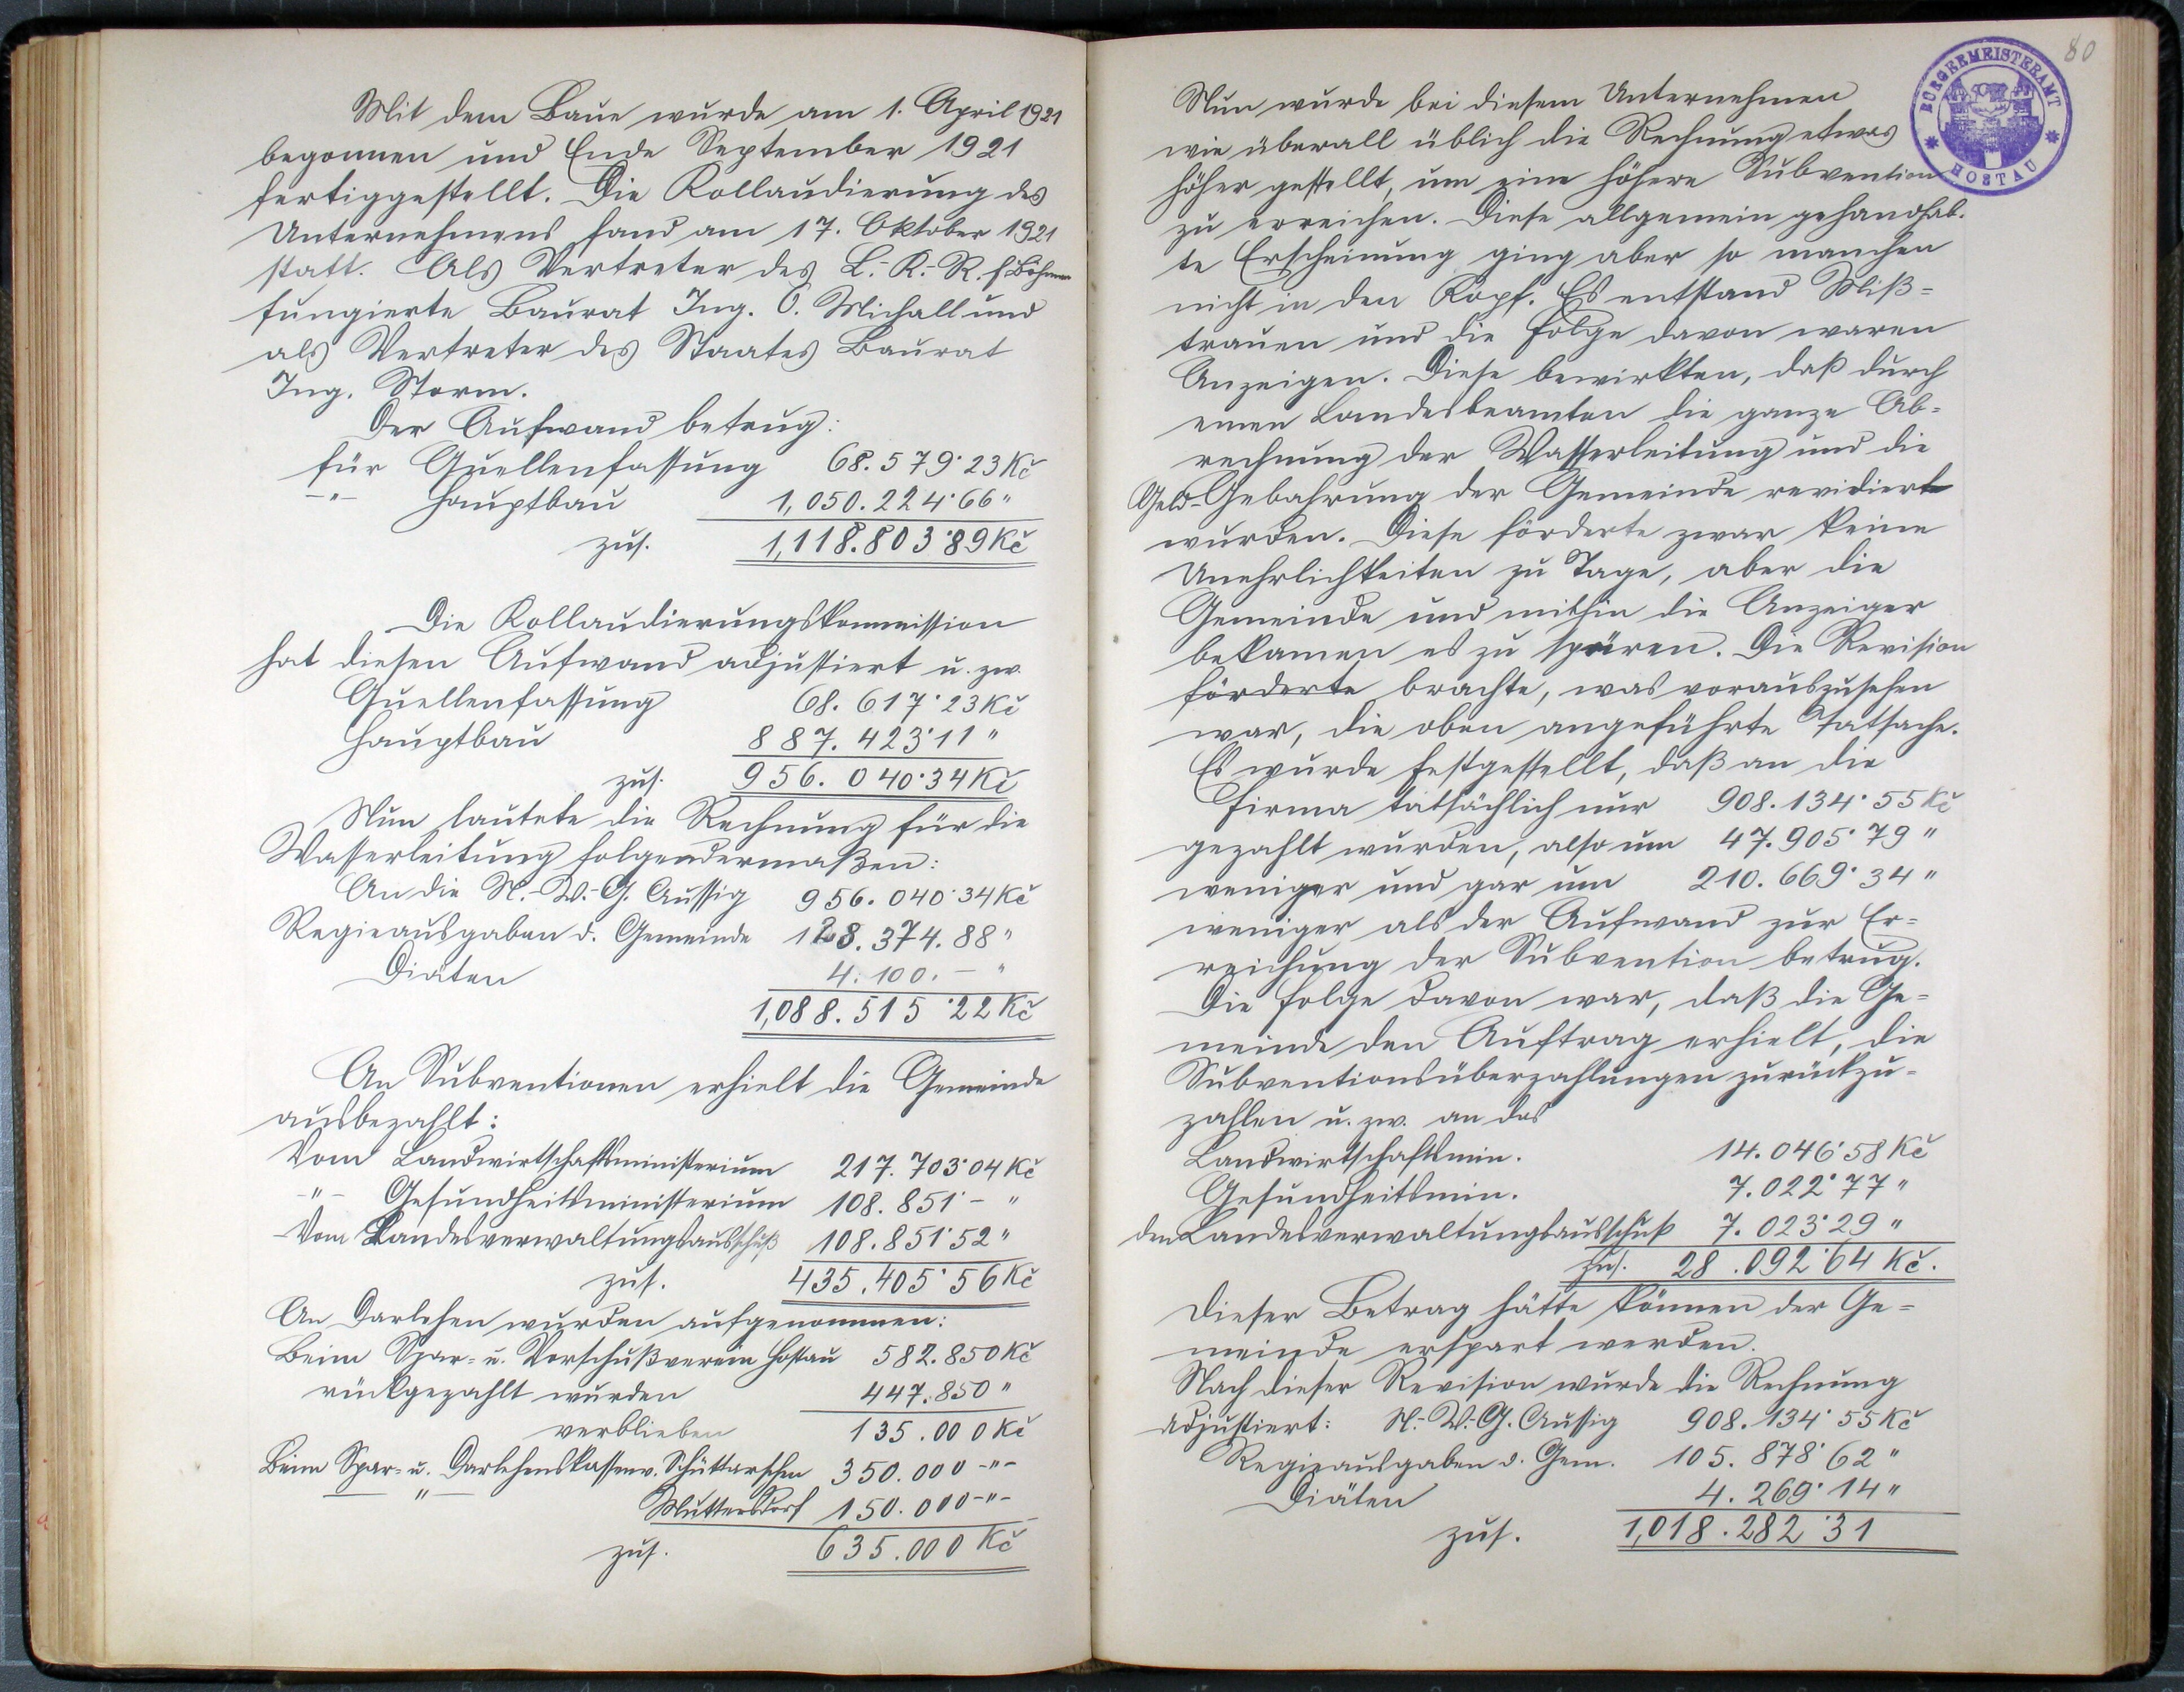 Mit dem Baue wurde am 1. April 1921
begonnen und Ende September 1921
fertiggestellt. Die Kollaudierung des
Unternehmens fand am 17. Oktober 1921
statt. Als Vertreter des L.-K.-R. f. Böhmen
fungierte Baurat Ing. O. Michall und
als Vertreter des Staates Baurat
Ing. Storm.
Der Aufwand betrug:
für Quellenfassung 68.579·23 Kč
-"- Hauptbau 1,050.224·66 "
zus. 1,118.803·89 Kč
Die Kollaudierungskommission
hat diesen Aufwand adjustiert u. zw.
Quellenfassung 68.617·23 Kč
Hauptbau 887.423·11 "
zus. 956.040·34 Kč
Nun lautete die Rechnung für die
Wasserleitung folgendermaßen:
An die N.-W.-G. Aussig 956.040·34 Kč
Regieausgaben d. Gemeinde 128.374.88 "
Diäten 4.100.— "
1,088.515·22 Kč
An Subventionen erhielt die Gemeinde
ausbezahlt:
Vom Landwirtschaftsministerium 217.703·04 Kč
-"- Gesundheitsministerium 108.851·- "
Vom Landesverwaltungsausschuß 108.851·52 "
zus. 435.405·56 Kč
An Darlehen wurden aufgenommen:
Beim Spar- u. Vorschußverein Hostau 582.850 Kč
rückgezahlt wurden 447.850 "
verblieben 135.000 Kč
Beim Spar- u. Darlehenskassenv. Schüttarschen 350.000 -"-
" Muttersdorf 150.000 -"-
zus. 635.000 Kč
80
BÜRGERMEISTERAMT
HOSTAU
Nun wurde bei diesem Unternehmen
wie überall üblich die Rechnung etwas
höher gestellt, um eine höhere Subvention
zu erreichen. Diese allgemein gehandhab-
te Erscheinung ging aber so manchen
nicht in den Kopf. Es entstand Miß-
trauen und die Folge davon waren
Anzeigen. Diese bewirkten, daß durch
einen Landesbeamten die ganze Ab-
rechnung der Wasserleitung und die
Geld-Gebahrung der Gemeinde revidiert
wurden. Diese förderte zwar keine
Unehrlichkeiten zu Tage, aber die
Gemeinde und mithin die Anzeiger
bekamen es zu spüren. Die Revision
förderte brachte, was vorauszusehen
war, die oben angeführte Tatsache.
Es wurde festgestellt, daß an die
Firma tatsächlich nur 908.134·55 Kč
gezahlt wurden, also um 47.905·79 "
weniger und gar um 210.669·34 "
weniger als der Aufwand zur Er-
reichung der Subvention betrug.
Die Folge davon war, daß die Ge-
meinde den Auftrag erhielt, die
Subventionsüberzahlungen zurückzu-
zahlen u. zw. an das
Landwirtschaftsmin. 14.046·58 Kč
Gesundheitsmin. 7.022·77 "
den Landesverwaltungsausschuß 7.023·29 "
zus. 28.092·64 Kč.
Dieser Betrag hätte können der Ge-
meinde erspart werden.
Nach dieser Revision wurde die Rechnung
adjustiert: N.-W.-G. Aussig 908.134·55 Kč
Regieausgaben d. Gem. 105.878·62 "
Diäten 4.269·14 "
zus. 1,018.282·31